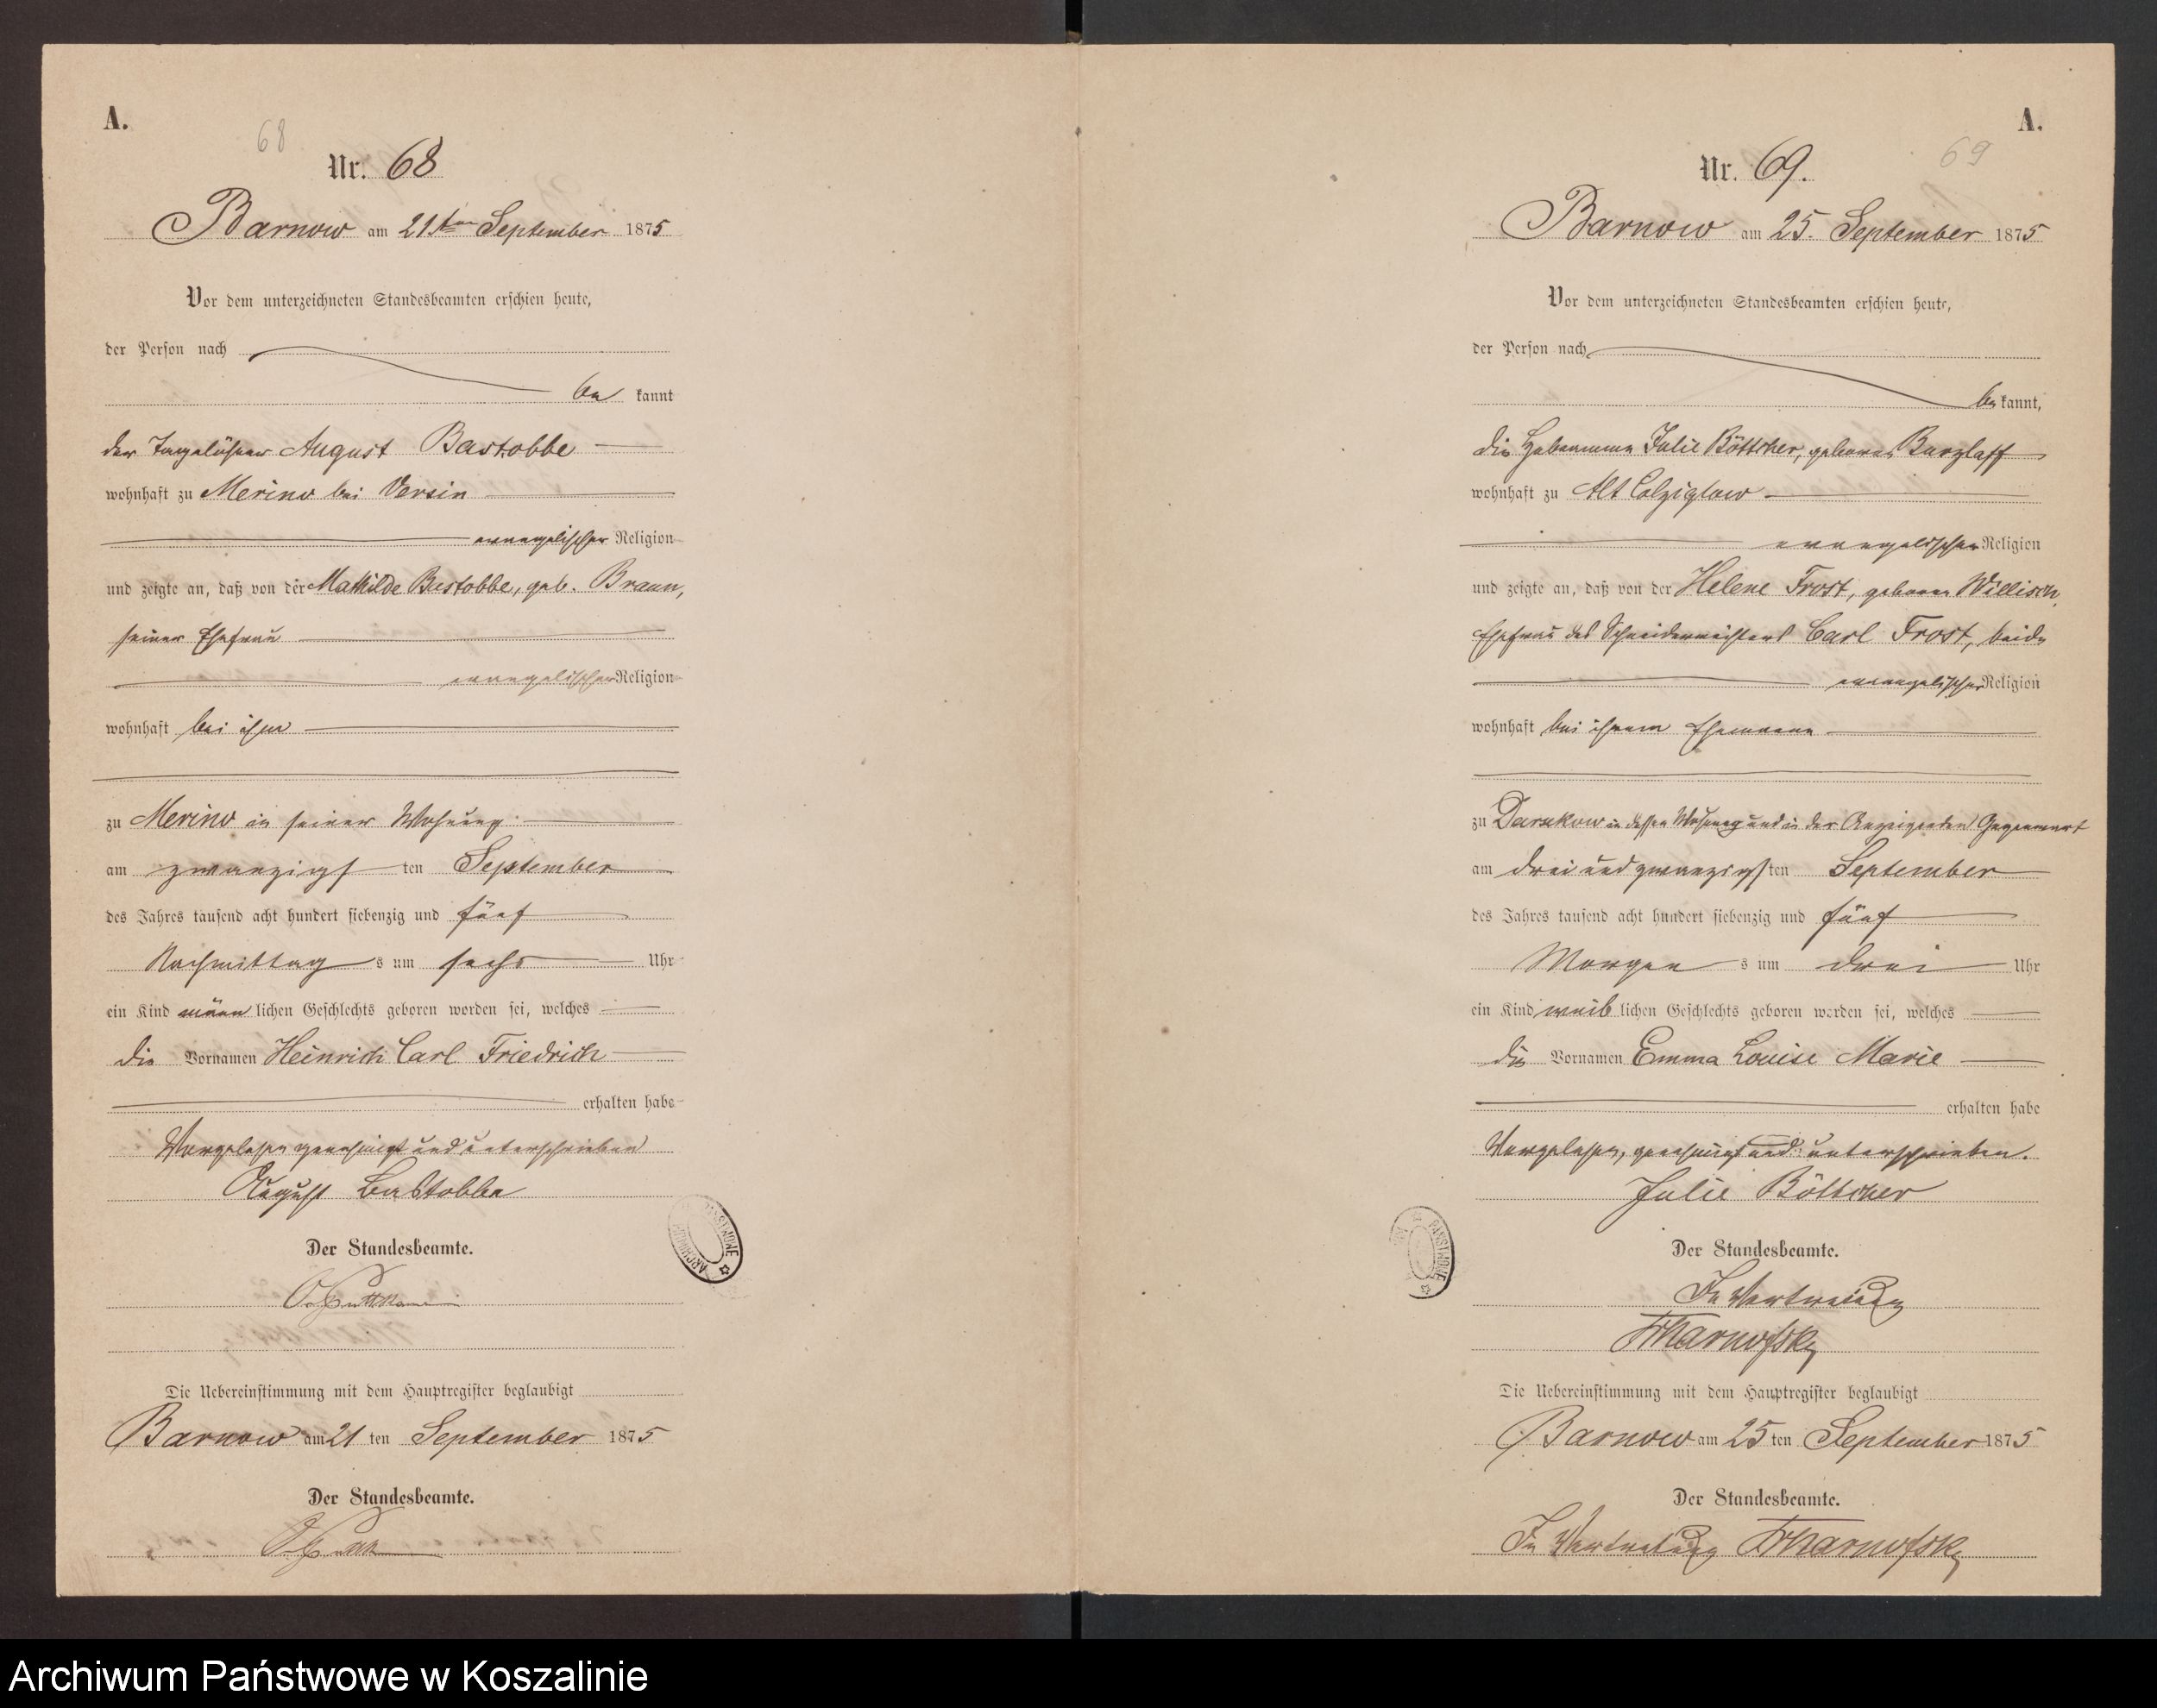 A.
68
Nr. 68
Barnow am 21ten September 1875
Vor dem unterzeichneten Standesbeamten erschien heute,
der Person nach
be kannt
der Tagelöhner August Bastobbe
wohnhaft zu Merino bei Versin
evangelischer Religion
und zeigte an, daß von der Mathilde Bastobbe, geb. Braun,
seiner Ehefrau
evangelischer Religion
wohnhaft bei ihm
zu Merino in seiner Wohnung
am zwanzigsten September
des Jahres tausend acht hundert siebenzig und fünf
Nachmittags um sechs Uhr
ein Kind männlichen Geschlechts geboren worden sei, welches
die Vornamen Heinrich Carl Friedrich
erhalten habe
Vorgelesen genehmigt und unterschrieben
August Bastobbe
Der Standesbeamte.
Die Uebereinstimmung mit dem Hauptregister beglaubigt
Barnow am 21 ten September 1875
Der Standesbeamte.
A.
69
Nr. 69.
Barnow am 25. September 1875
Vor dem unterzeichneten Standesbeamten erschien heute,
der Person nach
be kannt,
die Hebamme Julie Böttcher, geborene Barzlaff
wohnhaft zu Alt Colziglow
evangelischer Religion
und zeigte an, daß von der Helene Frost, geboren Willisch,
Ehefrau des Schneidermeisters Carl Frost, beide
evangelischer Religion
wohnhaft bei ihrem Ehemann
zu Darsekow in dessen Wohnung und in der Anzeigenden Gegenwart
am drei und zwanzigsten September
des Jahres tausend acht hundert siebenzig und fünf
Morgens um drei Uhr
ein Kind weiblichen Geschlechts geboren worden sei, welches
die Vornamen Emma Louise Marie
erhalten habe
Vorgelesen, genehmigt und unterschrieben.
Julie Böttcher
Der Standesbeamte.
In Vertretung
Die Uebereinstimmung mit dem Hauptregister beglaubigt
Barnow am 25 ten September 1875
Der Standesbeamte.
In Vertretung
Archiwum Państwowe w Koszalinie